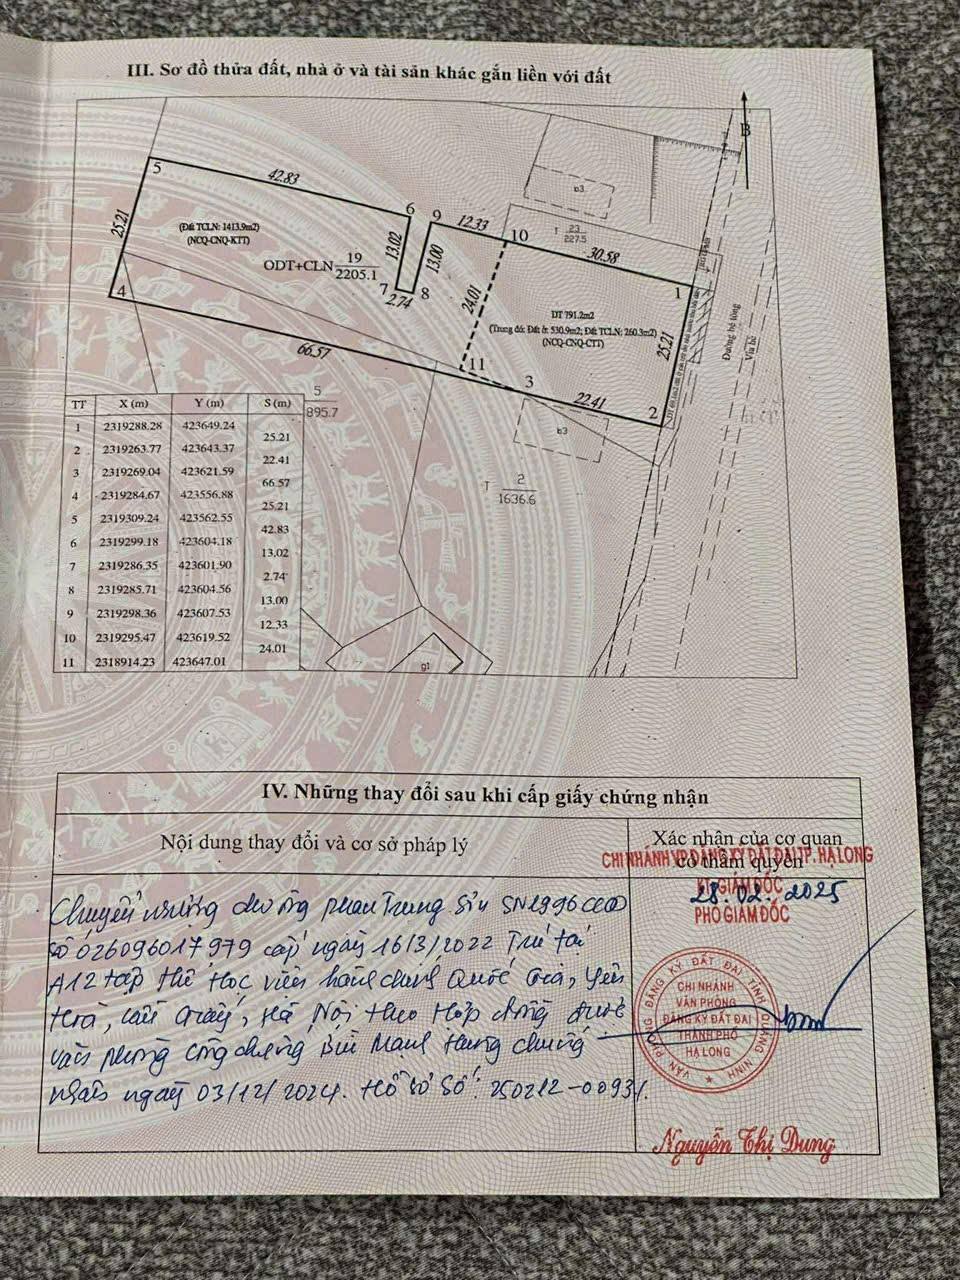 III. Sơ đồ thửa đất, nhà ở và tài sản khác gắn liền với đất
B
5
42.83
6
9
12.33
10
30.58
1
25.21
(Đất TCLN: 1413.9m2)
(NCQ-CNQ-KTT)
ODT+CLN 19
2205.1
13.02
13.00
7
2.74
8
24.01
4
66.57
11
3
22.41
2
25.21
b3
T 23
227.5
DT 791.2m2
(Trung đó: Đất ở: 530.9m2; Đất TCLN: 260.3m2)
(NCQ-CNQ-CTT)
Đường bê tông
Vỉa hè
5
895.7
b3
T 2
1636.6
g1
TT X (m) Y (m) S (m)
1 2319288.28 423649.24
25.21
2 2319263.77 423643.37
22.41
3 2319269.04 423621.59
66.57
4 2319284.67 423556.88
25.21
5 2319309.24 423562.55
42.83
6 2319299.18 423604.18
13.02
7 2319286.35 423601.90
2.74
8 2319285.71 423604.56
13.00
9 2319298.36 423607.53
12.33
10 2319295.47 423619.52
24.01
11 2318914.23 423647.01
IV. Những thay đổi sau khi cấp giấy chứng nhận
Nội dung thay đổi và cơ sở pháp lý
Xác nhận của cơ quan
có thẩm quyền
Chuyển nhượng cho ông phan Trung Sĩu SN 1996 CCCD
số 026096017979 cấp ngày 16/3/2022 Trú tại
A12 tập thể Học viện hành chính Quốc Gia, Yên
Hoà, Cầu Giấy, Hà Nội theo Hợp đồng được
văn phòng công chứng Bùi Mạnh Hùng chứng
nhận ngày 03/12/2024. Hồ sơ số: 250212-0093/.
CHI NHÁNH VP. ĐĂNG KÝ ĐẤT ĐAI TP. HẠ LONG
KT. GIÁM ĐỐC
28.02.2025
PHÓ GIÁM ĐỐC
VĂN PHÒNG ĐĂNG KÝ ĐẤT ĐAI TỈNH QUẢNG NINH
CHI NHÁNH
VĂN PHÒNG
ĐĂNG KÝ ĐẤT ĐAI
THÀNH PHỐ
HẠ LONG
Nguyễn Thị Dung